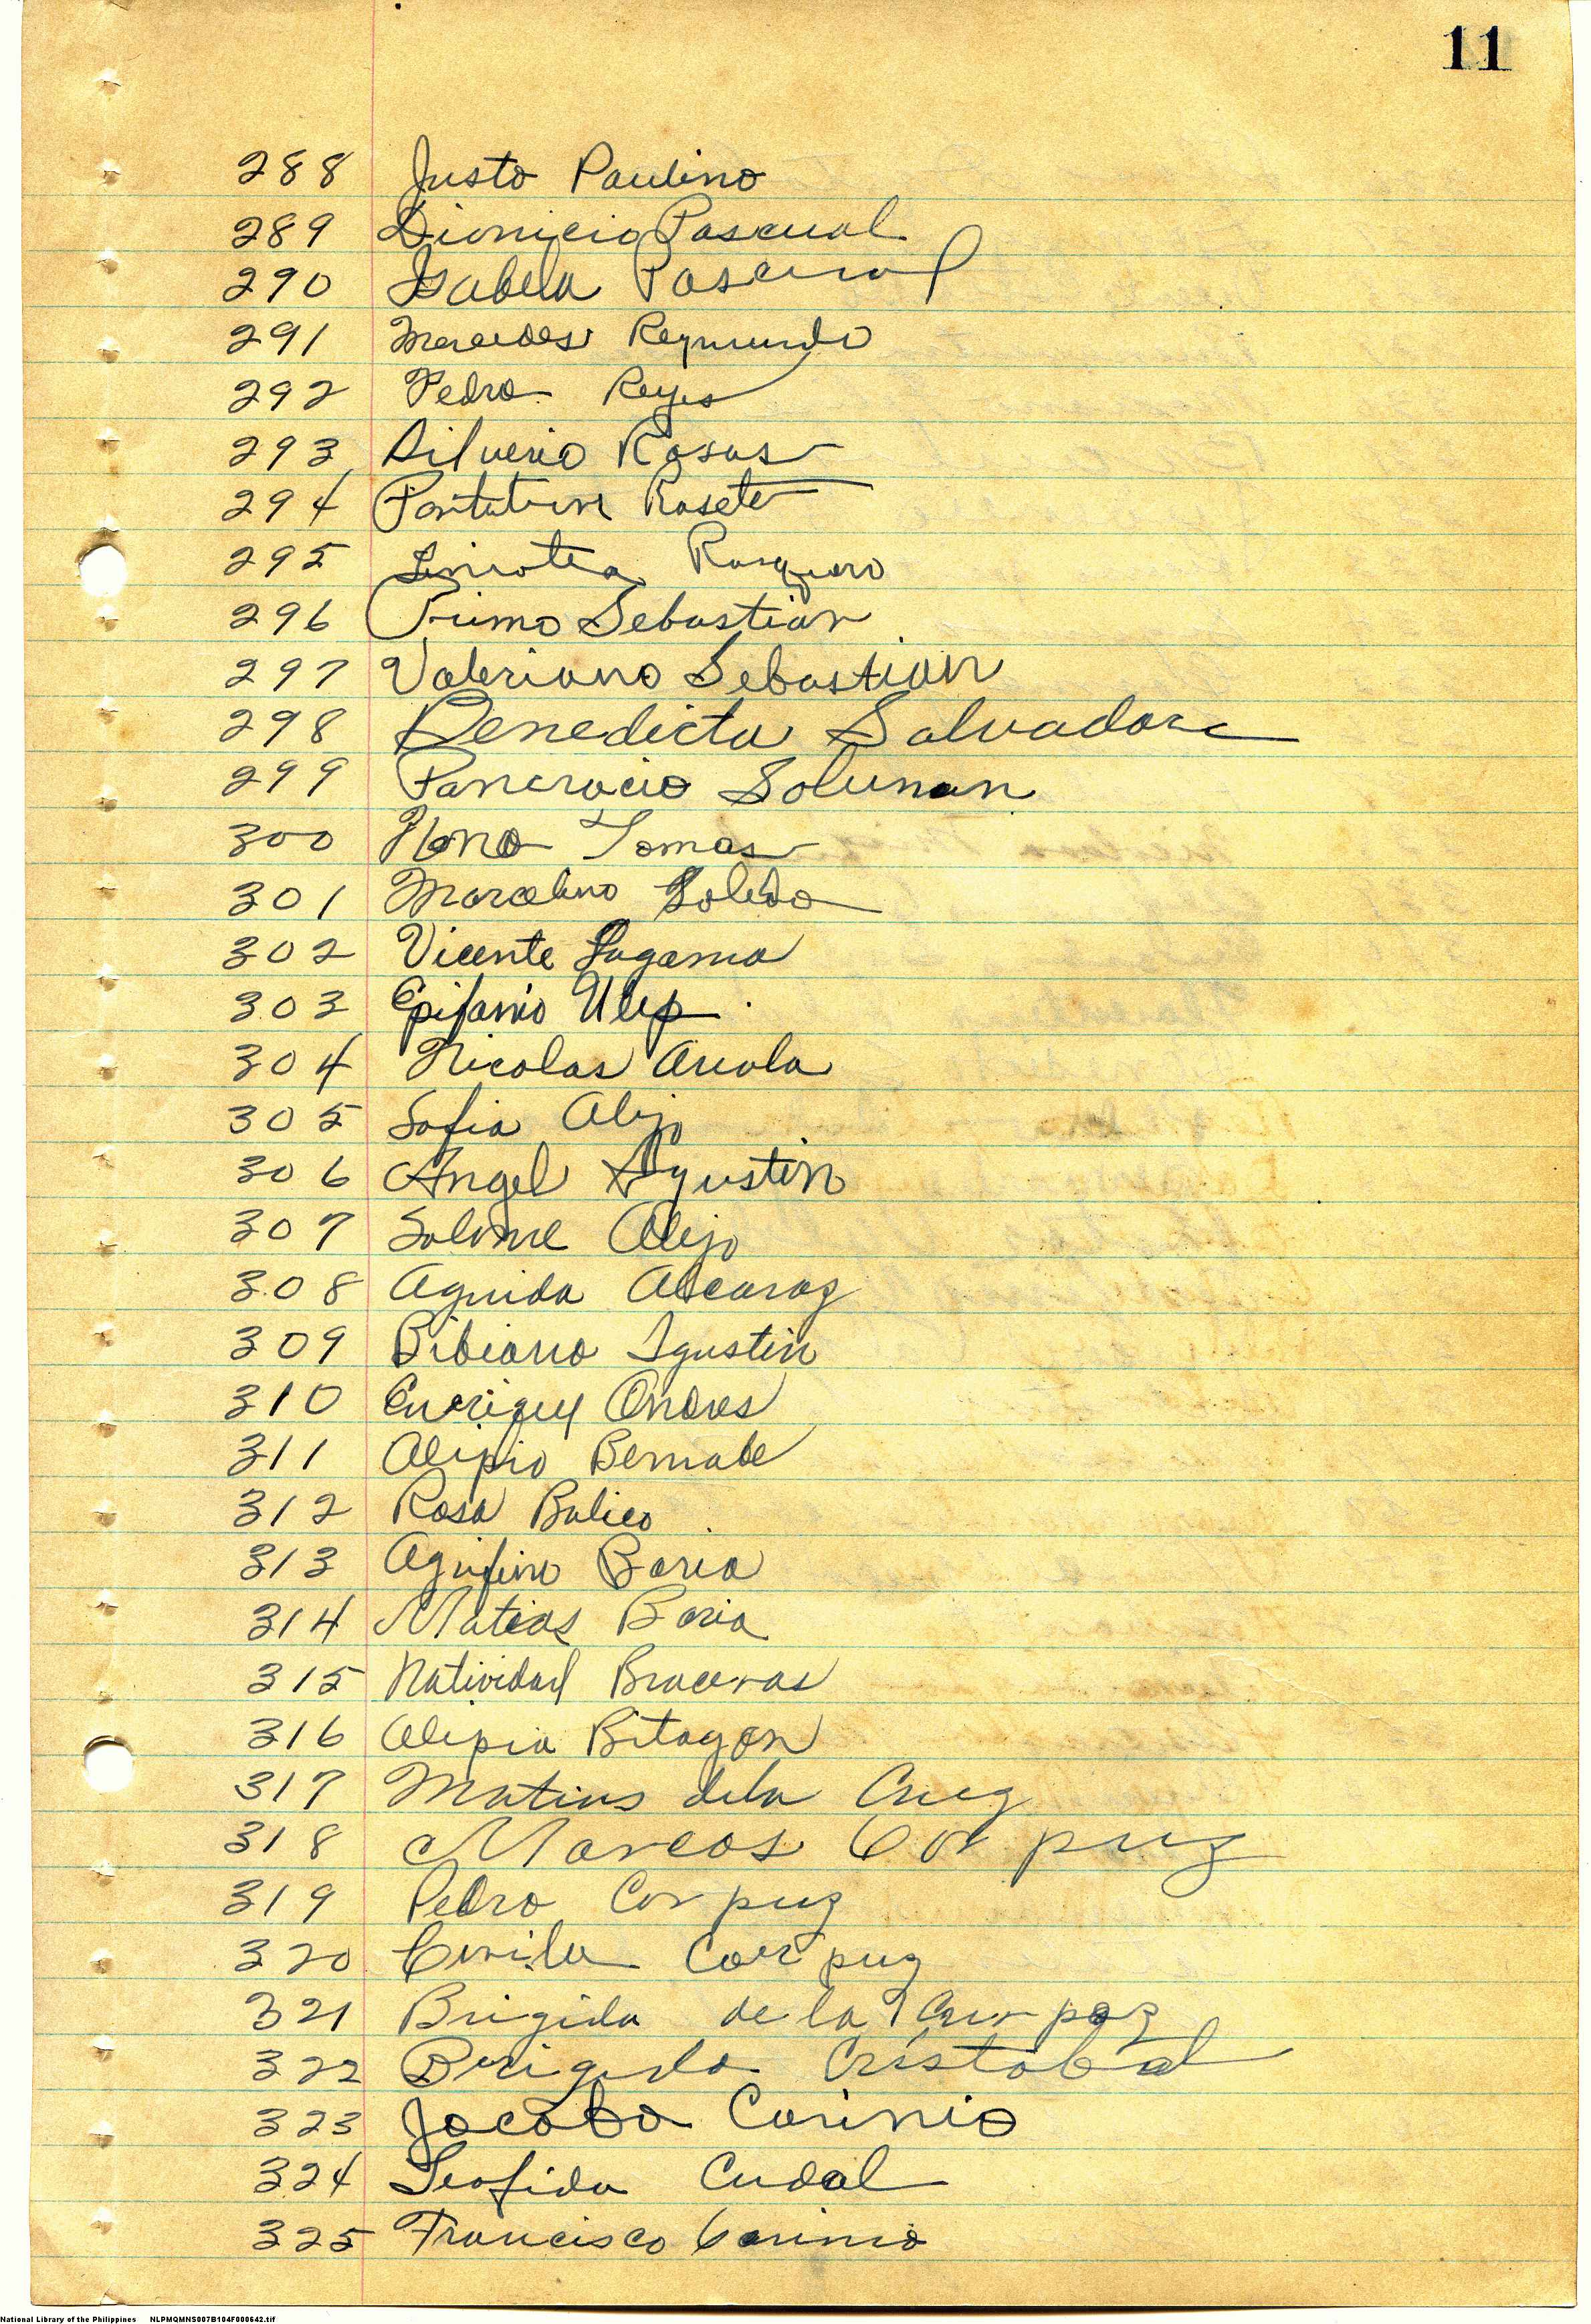 11
288 Justo Paulino
289 Dionicio Pascual
290 Isabela Pascual
291 Mercedes Reymundo
292 Pedro Reyes
293 Silverio Rosas
294 Rosete
295
296 Primo Sebastian
297 Valeriano Sebastian
298 Benedicta Salvador
299 Pancracio Solunan
300 Tomas
301 Marcelino Toledo
302 Vicente
303 Epifanio Ulep
304 Nicolas
305 Sofia Alejo
306 Angel Agustin
307 Salome Alejo
308 Aguida Alcaraz
309 Bibiana Agustin
310 Andres
311 Alipio Bernabe
312 Rosa Balico
313 Boria
314 Matias Boria
315 Natividad Braceros
316 Alipia Bitagon
317 Matias dela Cruz
318 Marcos Corpuz
319 Pedro Corpuz
320 Corpuz
321 Brigida de la
322 Brigida Cristobal
323 Jacobo Carinio
324 Cudal
325 Francisco Carinio
National Library of the Philippines NLPMQMNS007B104F000642.tif